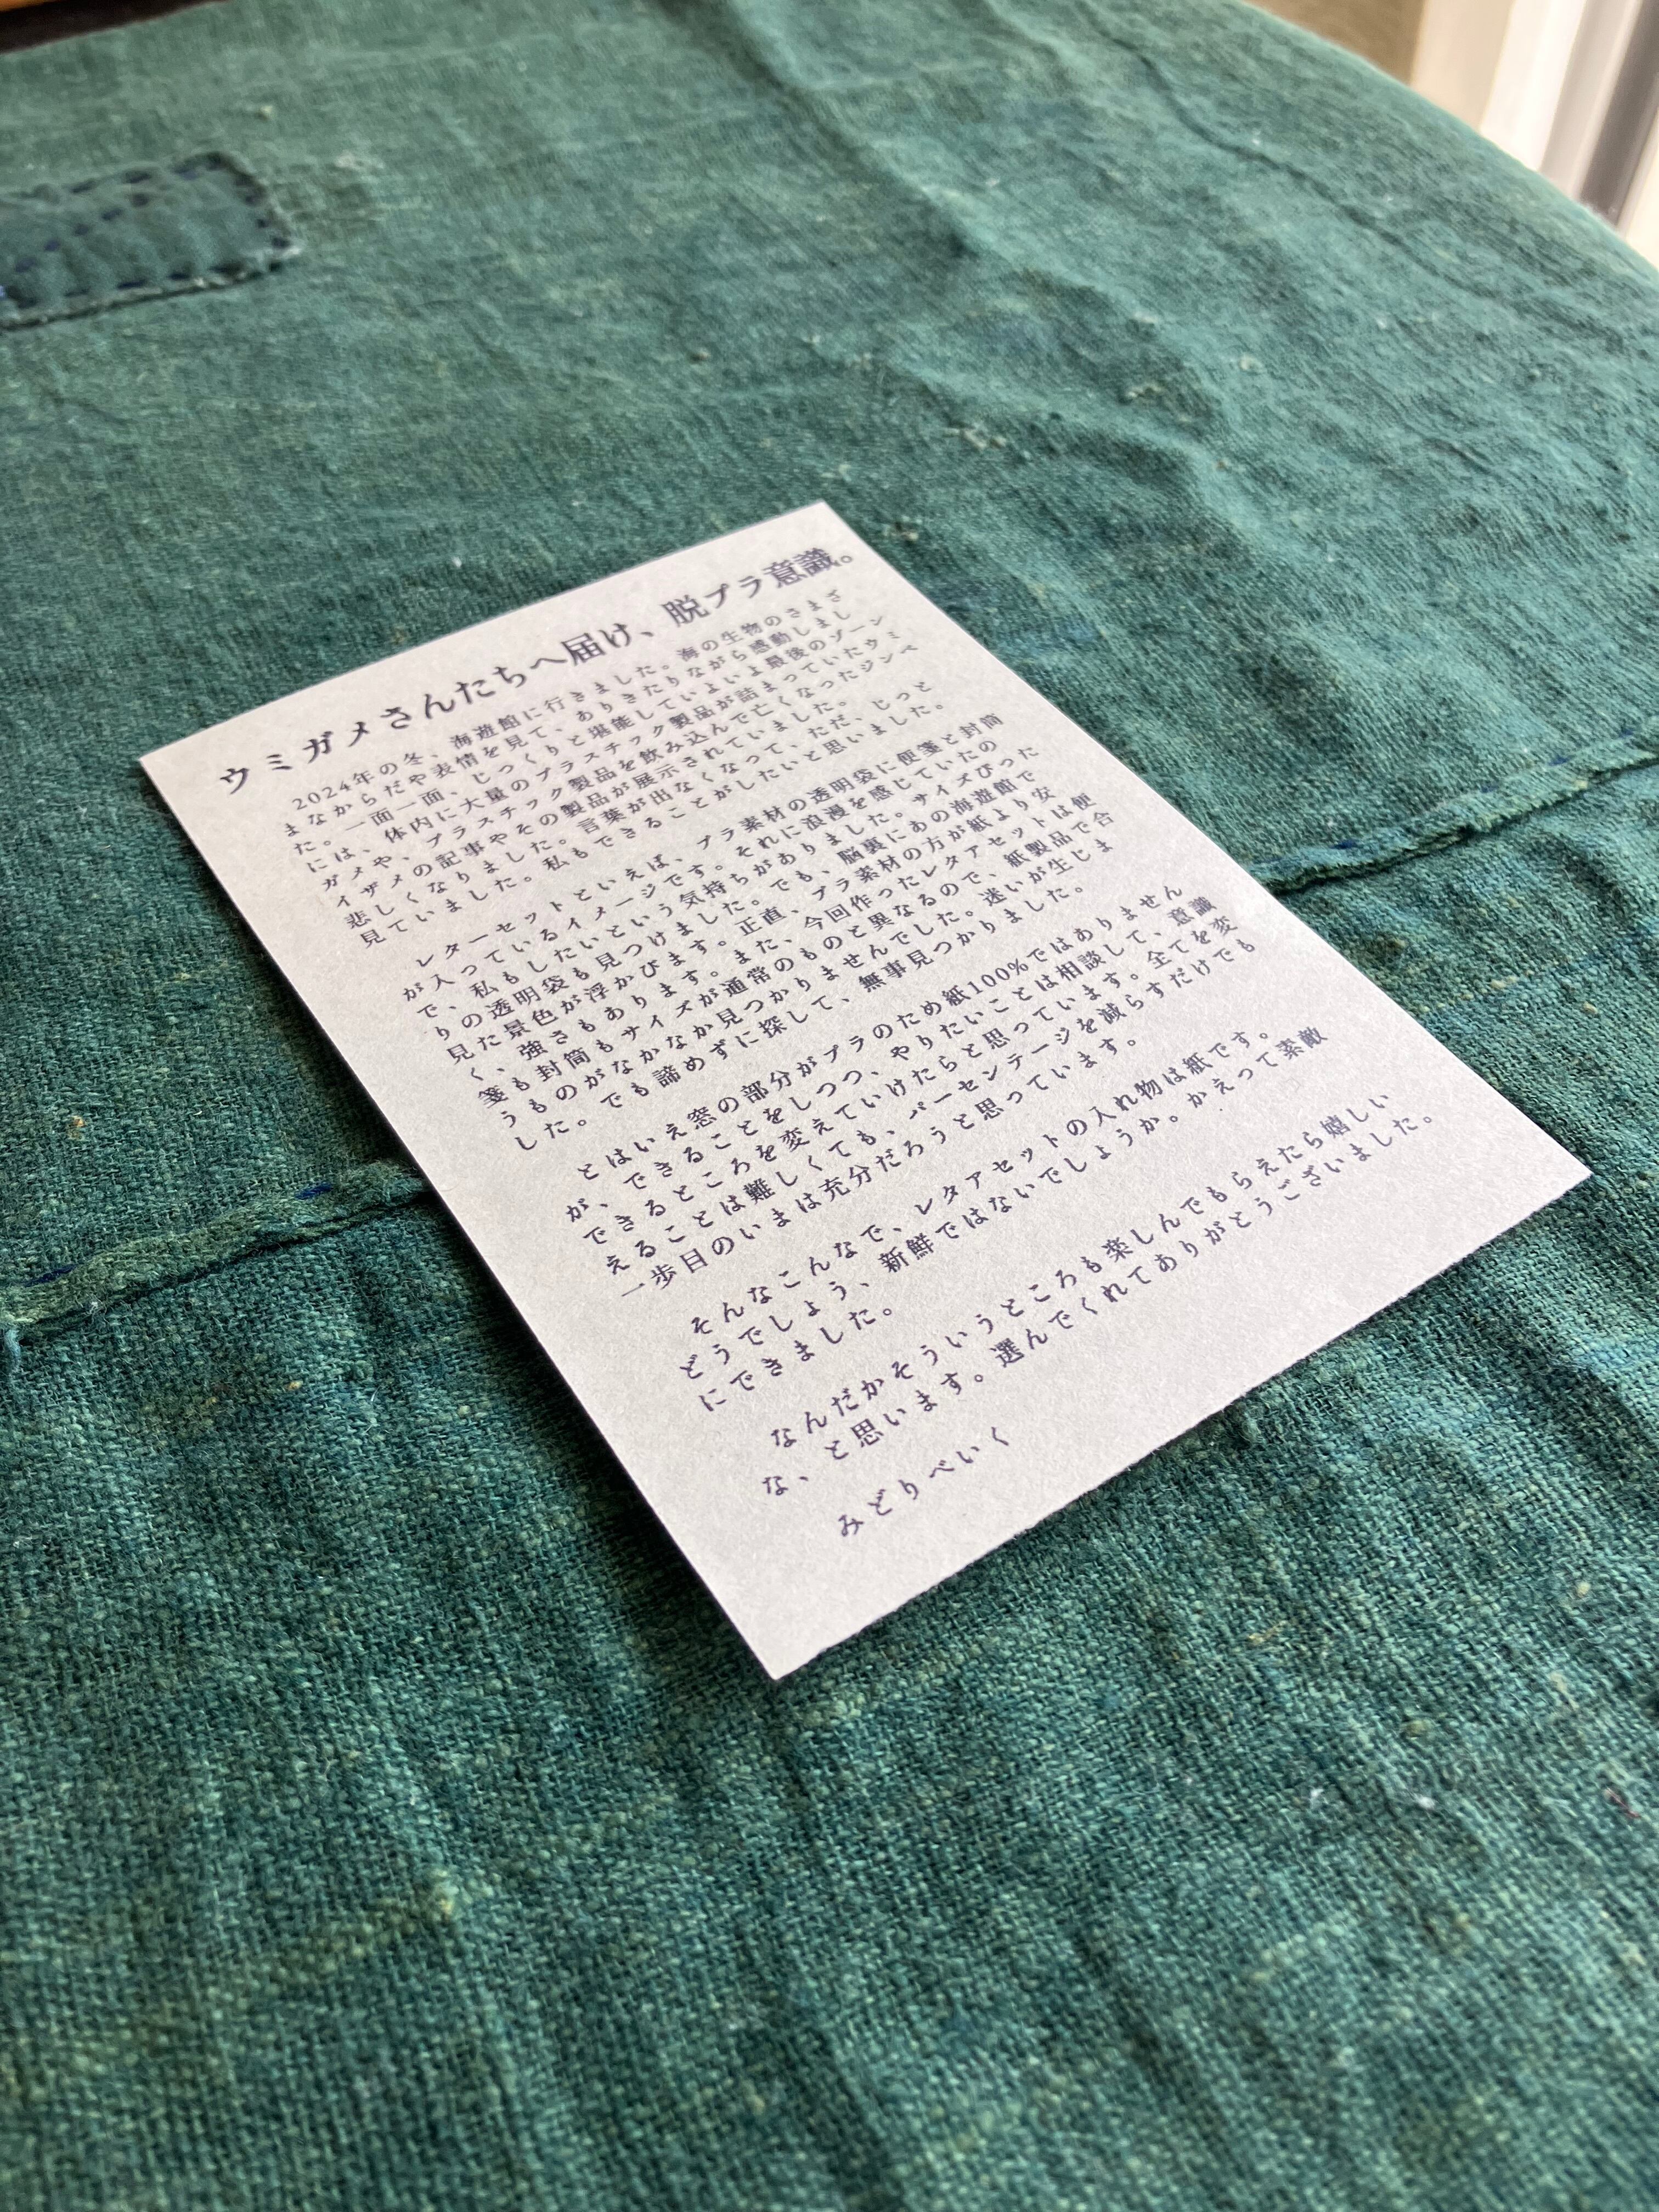 ウミガメさんたちへ届け、脱プラ意識。
2024年の冬、海遊館に行きました。海の生物のさまざ
まなからだや表情を見て、ありきたりながら感動しまし
た。一面一面、じっくりと堪能していよいよ最後のゾーン
には、体内に大量のプラスチック製品が詰まっていたウミ
ガメや、プラスチック製品を飲み込んで亡くなったジンベ
イザメの記事やその製品が展示されていました。
悲しくなりました。言葉が出なくなって、ただ、じっと
見ていました。私もできることがしたいと思いました。
レターセットといえば、プラ素材の透明袋に便箋と封筒
が入っているイメージです。それに浪漫を感じていたの
で、私もしたいという気持ちがありました。サイズぴった
りの透明袋も見つけました。でも、脳裏にあの海遊館で
見た景色が浮かびます。正直、プラ素材の方が紙より安
く、強さもあります。また、今回作ったレタアセットは便
箋も封筒もサイズが通常のものと異なるので、紙製品で合
うものがなかなか見つかりませんでした。迷いが生じま
した。でも諦めずに探して、無事見つかりました。
とはいえ窓の部分がプラのため紙100%ではありません
が、できることをしつつ、やりたいことは相談して、意識
できるところを変えていけたらと思っています。全てを変
えることは難しくても、パーセンテージを減らすだけでも
一歩目のいまは充分だろうと思っています。
そんなこんなで、レタアセットの入れ物は紙です。
どうでしょう、新鮮ではないでしょうか。かえって素敵
にできました。
なんだかそういうところも楽しんでもらえたら嬉しい
な、と思います。選んでくれてありがとうございました。
みどりべいく